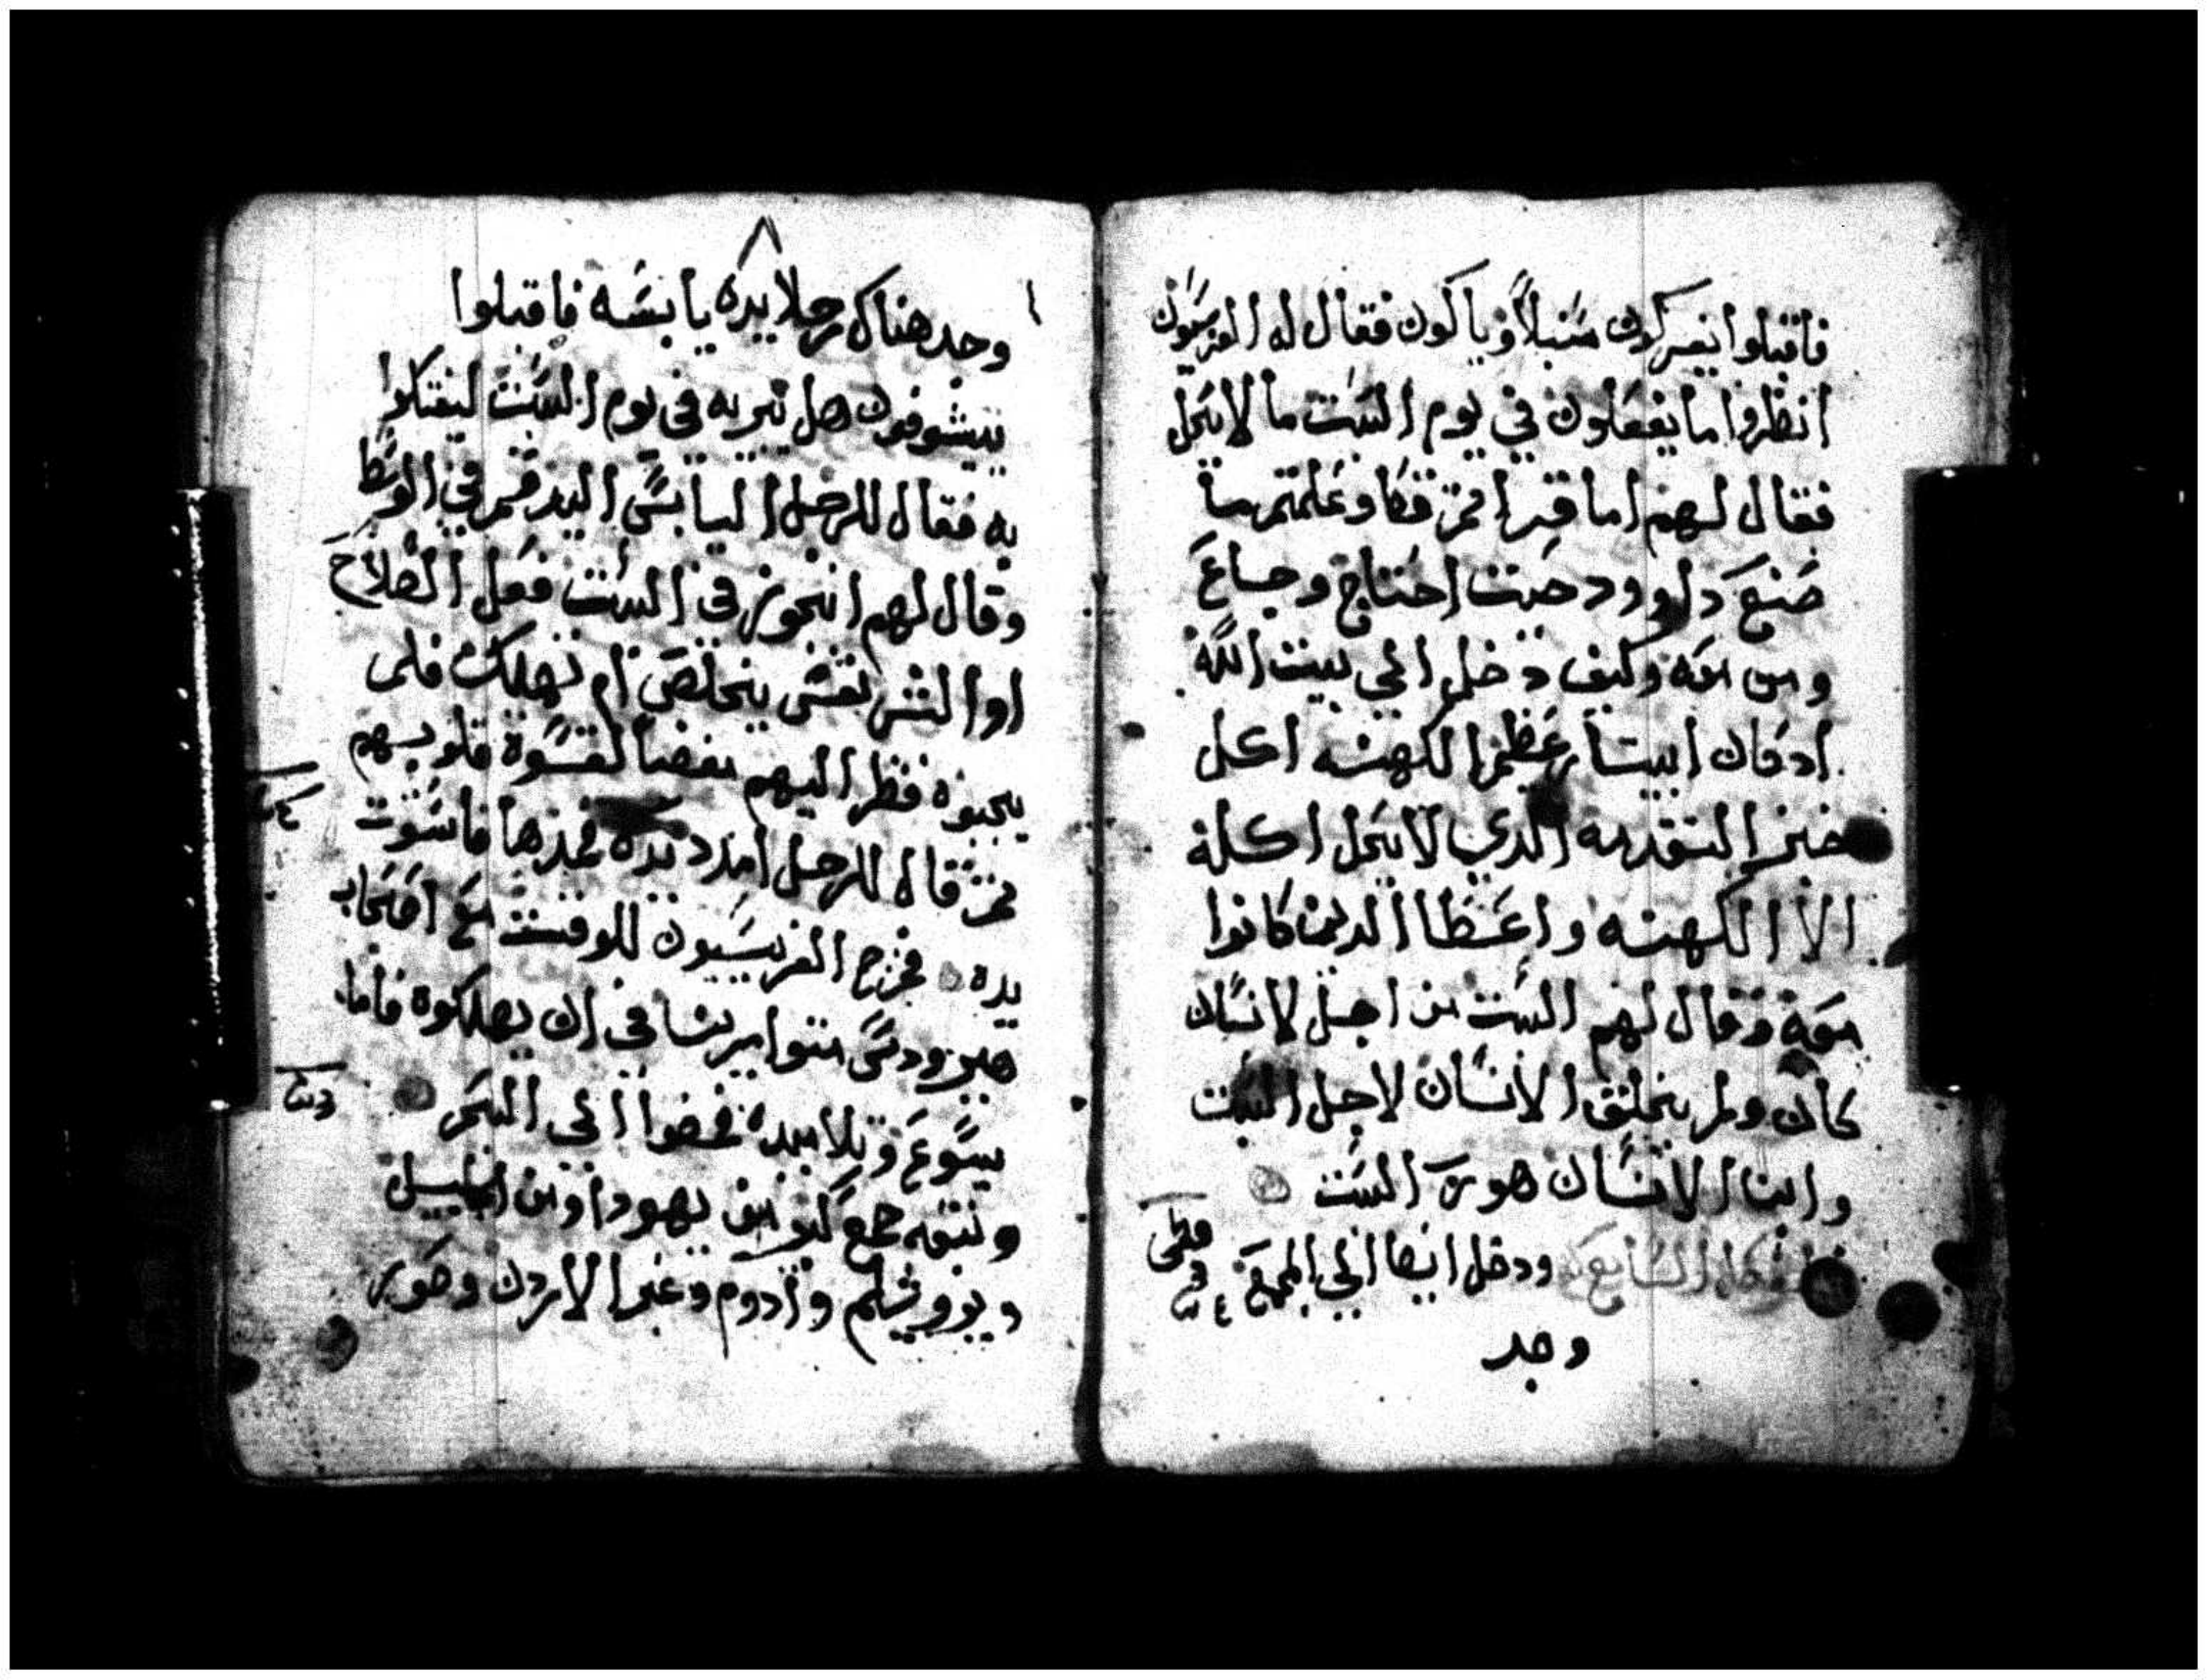 فاقبلوا يفركون سنبلاً وياكلون فقال له الفريسيون
انظروا ما يفعلون في يوم السبت ما لا يحل
فقال لهم اما قراتم قط وعلمتم ما
صنع داوود حيت احتاج وجاع
ومن معه وكيف دخل الي بيت الله
اد كان ابيتار عظيم الكهنه اكل
خبز التقدمه الدي لا يحل اكله
الا الكهنه واعطا الدين كانوا
معه وقال لهم السبت من اجل الانسان
كان ولم يخلق الانسان لاجل السبت
وابن الانسان هو رب السبت
ودخل ايضا الي المجمع
وجد
وجد هناك رجلا يده يابسه فاقبلوا
هل يبريه في يوم السبت
به فقال للرجل اليابس اليد قم في الوسط
وقال لهم ايجوز في السبت فعل الصلاح
او الشر نفس يخلص ام تهلك فلم
يجيبوه فنظر اليهم قلوبهم
تم قال للرجل امدد يده فمدها فاستوت
يده فخرج الفريسيون للوقت مع اصحاب
هيرودس في ان يهلكوه فاما
يسوع وتلاميده فمضوا الي البحر
وتبعه جمع كتير من يهودا ومن الجليل
ويروشليم وادوم وعبر الاردن وصور